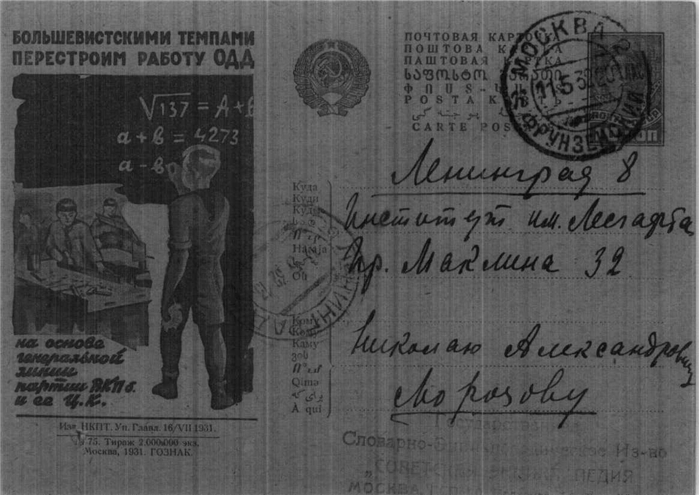 БОЛЬШЕВИСТСКИМИ ТЕМПАМИ
ПЕРЕСТРОИМ РАБОТУ ОДД
√137 = A+B
a + b = 4273
a - b
на основе
генеральной
линии
партии ВКПб.
и ее Ц.К.
Изд. НКПТ. Уп. Главл. 16/VII 1931.
75. Тираж 2.000.000 экз.
Москва, 1931. ГОЗНАК.
ПОЧТОВАЯ
ПОШТОВА
ПАШТОВАЯ
POSTA
CARTE
МОСКВА
11 5 3
ФРУНЗЕНСКИЙ
Куда
Куди
Куды
Haraja
Où
Кому
Каму
Qima
À qui
ЛЕНИНГРАД
Ленинград 8
Институт им. Лесгафта
пр. Маклина 32
Николаю Александровичу
Морозову
Словарно-
Из-во
„СОВЕТСКАЯ
ПЕДИЯ
МОСКВА